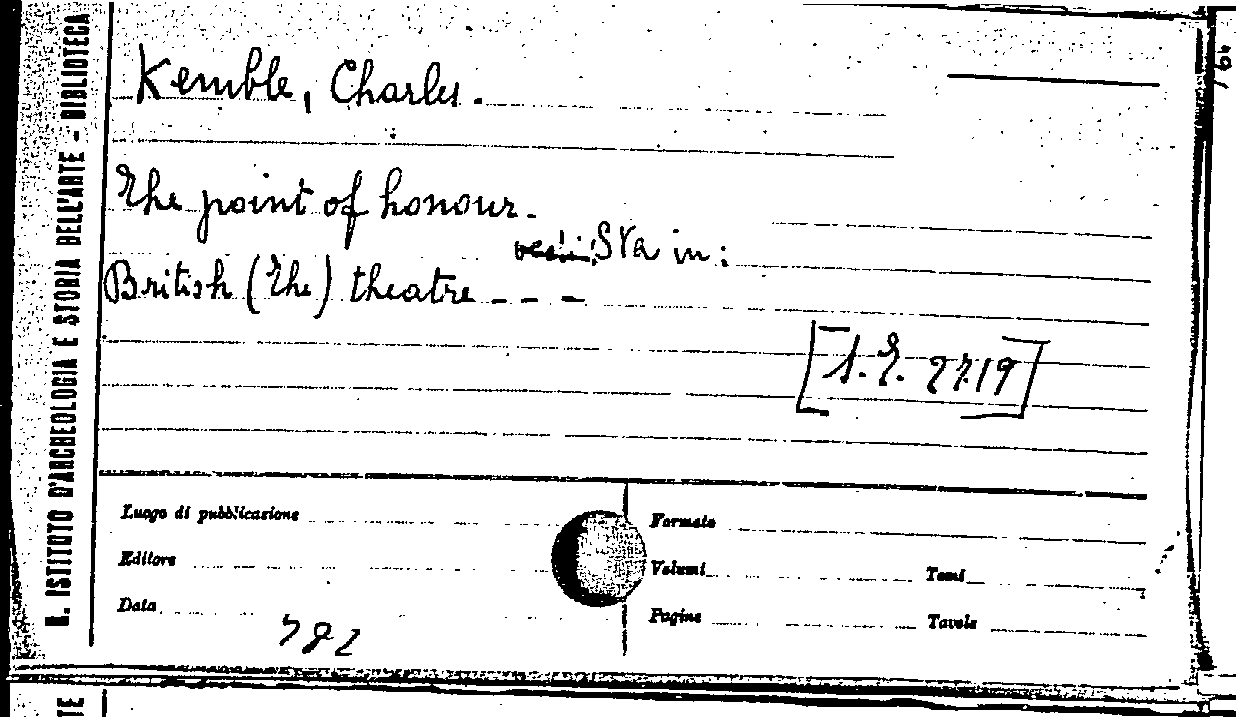 R. ISTITUTO D'ARCHEOLOGIA E STORIA DELL'ARTE - BIBLIOTECA
Kemble, Charles.
The point of honour.
Sta in:
British (The) theatre - - -
[S. E. 27.19]
Luogo di pubblicazione
Formato
Editore
Volumi
Tomi
Data
Pagine
Tavole
782
TE